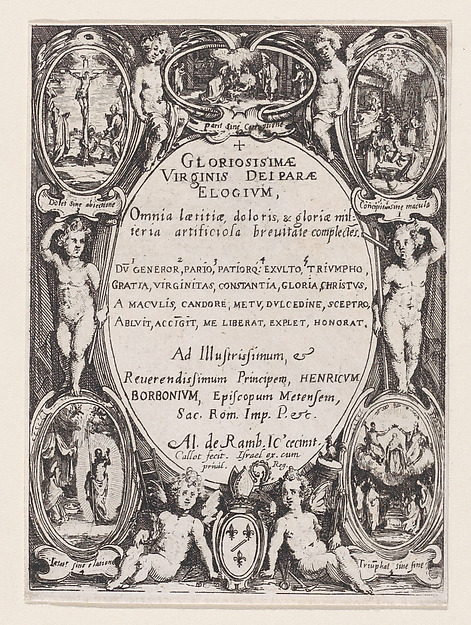 parit sine Corruptione
Dolet sine abiectione
Concipitur sine macula
1
GLORIOSISIMÆ
VIRGINIS DEIPARÆ
ELOGIVM,
Omnia lætitiæ, doloris, & gloriæ ma-
teria artificiosa brevitate complectēs.
1 2 3 4 5
DV̄ GENEROR, PARIO, PATIORQ: EXVLTO, TRIVMPHO,
GRATIA, VIRGINITAS, CONSTANTIA, GLORIA, CHRISTVS,
A MACVLIS, CANDORE, METV, DVLCEDINE, SCEPTRO,
ABLVIT, ACCIGIT, ME LIBERAT, EXPLET, HONORAT.
Ad Illustrissimum, &
Reverendissimum Principem, HENRICVM
BORBONIVM, Episcopum Metensem,
Sac. Rom. Imp. P. etc.
Al. de Ramb. IC.' cecinit.
Callot fecit. Israel ex. cum
privil. Reg.
Letat sine elatione
4
Triūphat sine fine